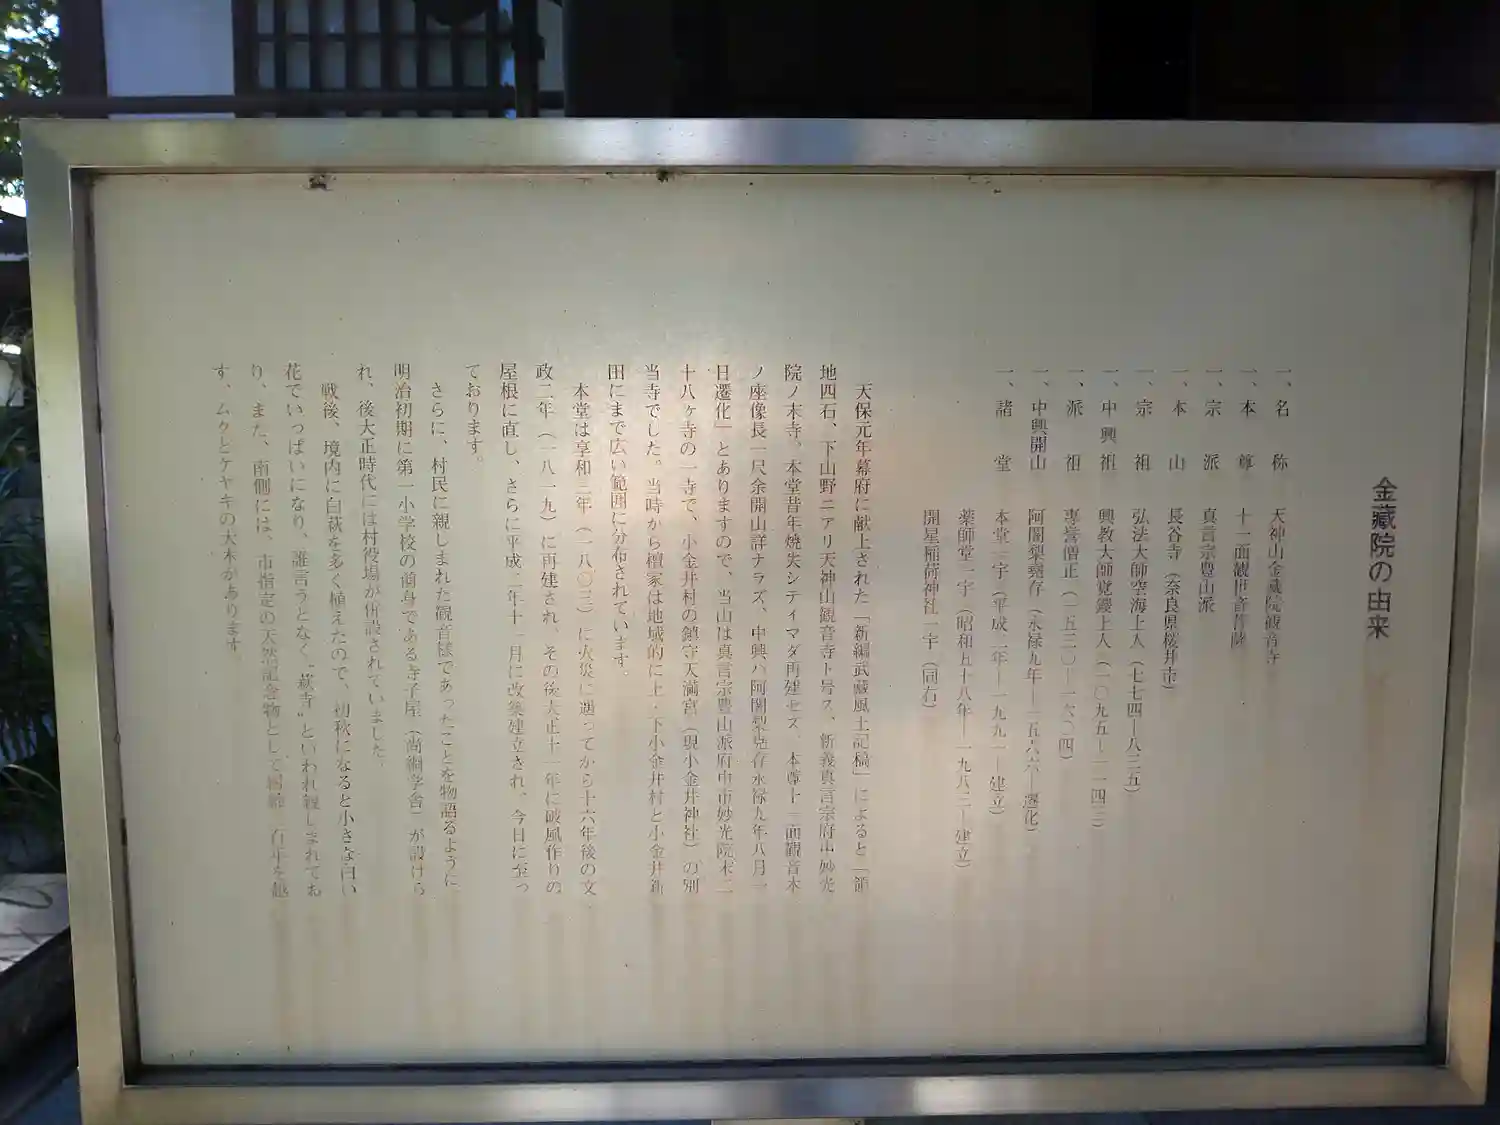 金藏院の由来
一、名称 天神山金藏院観音寺
一、本尊 十一面観世音菩薩
一、宗派 真言宗豊山派
一、本山 長谷寺（奈良県桜井市）
一、宗祖 弘法大師空海上人（七七四―八三五）
一、中興祖 興教大師覚鑁上人（一〇九五―一一四三）
一、派祖 専誉僧正（一五三〇―一六〇四）
一、中興開山 阿闍梨堯存（永禄九年―一五六六―遷化）
一、諸堂 本堂一宇（平成二年―一九九一―建立）
薬師堂一宇（昭和五十八年―一九八三―建立）
開星稲荷神社一宇（同右）
天保元年幕府に献上された「新編武蔵風土記稿」によると「領
地四石、下山野ニアリ天神山観音寺ト号ス、新義真言宗府中妙光
院ノ末寺。本堂昔年焼失シテイマダ再建セズ、本尊十一面観音木
ノ座像長一尺余開山詳ナラズ、中興ハ阿闍梨堯存永禄九年八月一
日遷化」とありますので、当山は真言宗豊山派府中市妙光院末二
十八ヶ寺の一寺で、小金井村の鎮守天満宮（現小金井神社）の別
当寺でした。当時から檀家は地域的に上・下小金井村と小金井新
田にまで広い範囲に分布されています。
本堂は享和三年（一八〇三）に火災に遇ってから十六年後の文
政二年（一八一九）に再建され、その後大正十一年に破風作りの
屋根に直し、さらに平成二年十一月に改築建立され、今日に至っ
ております。
さらに、村民に親しまれた観音様であったことを物語るように、
明治初期に第一小学校の前身である寺子屋（尚綱学舎）が設けら
れ、後大正時代には村役場が併設されていました。
戦後、境内に白萩を多く植えたので、初秋になると小さな白い
花でいっぱいになり、誰言うとなく〝萩寺〟といわれ親しまれてお
り、また、南側には、市指定の天然記念物として樹齢二百年を越
す、ムクとケヤキの大木があります。